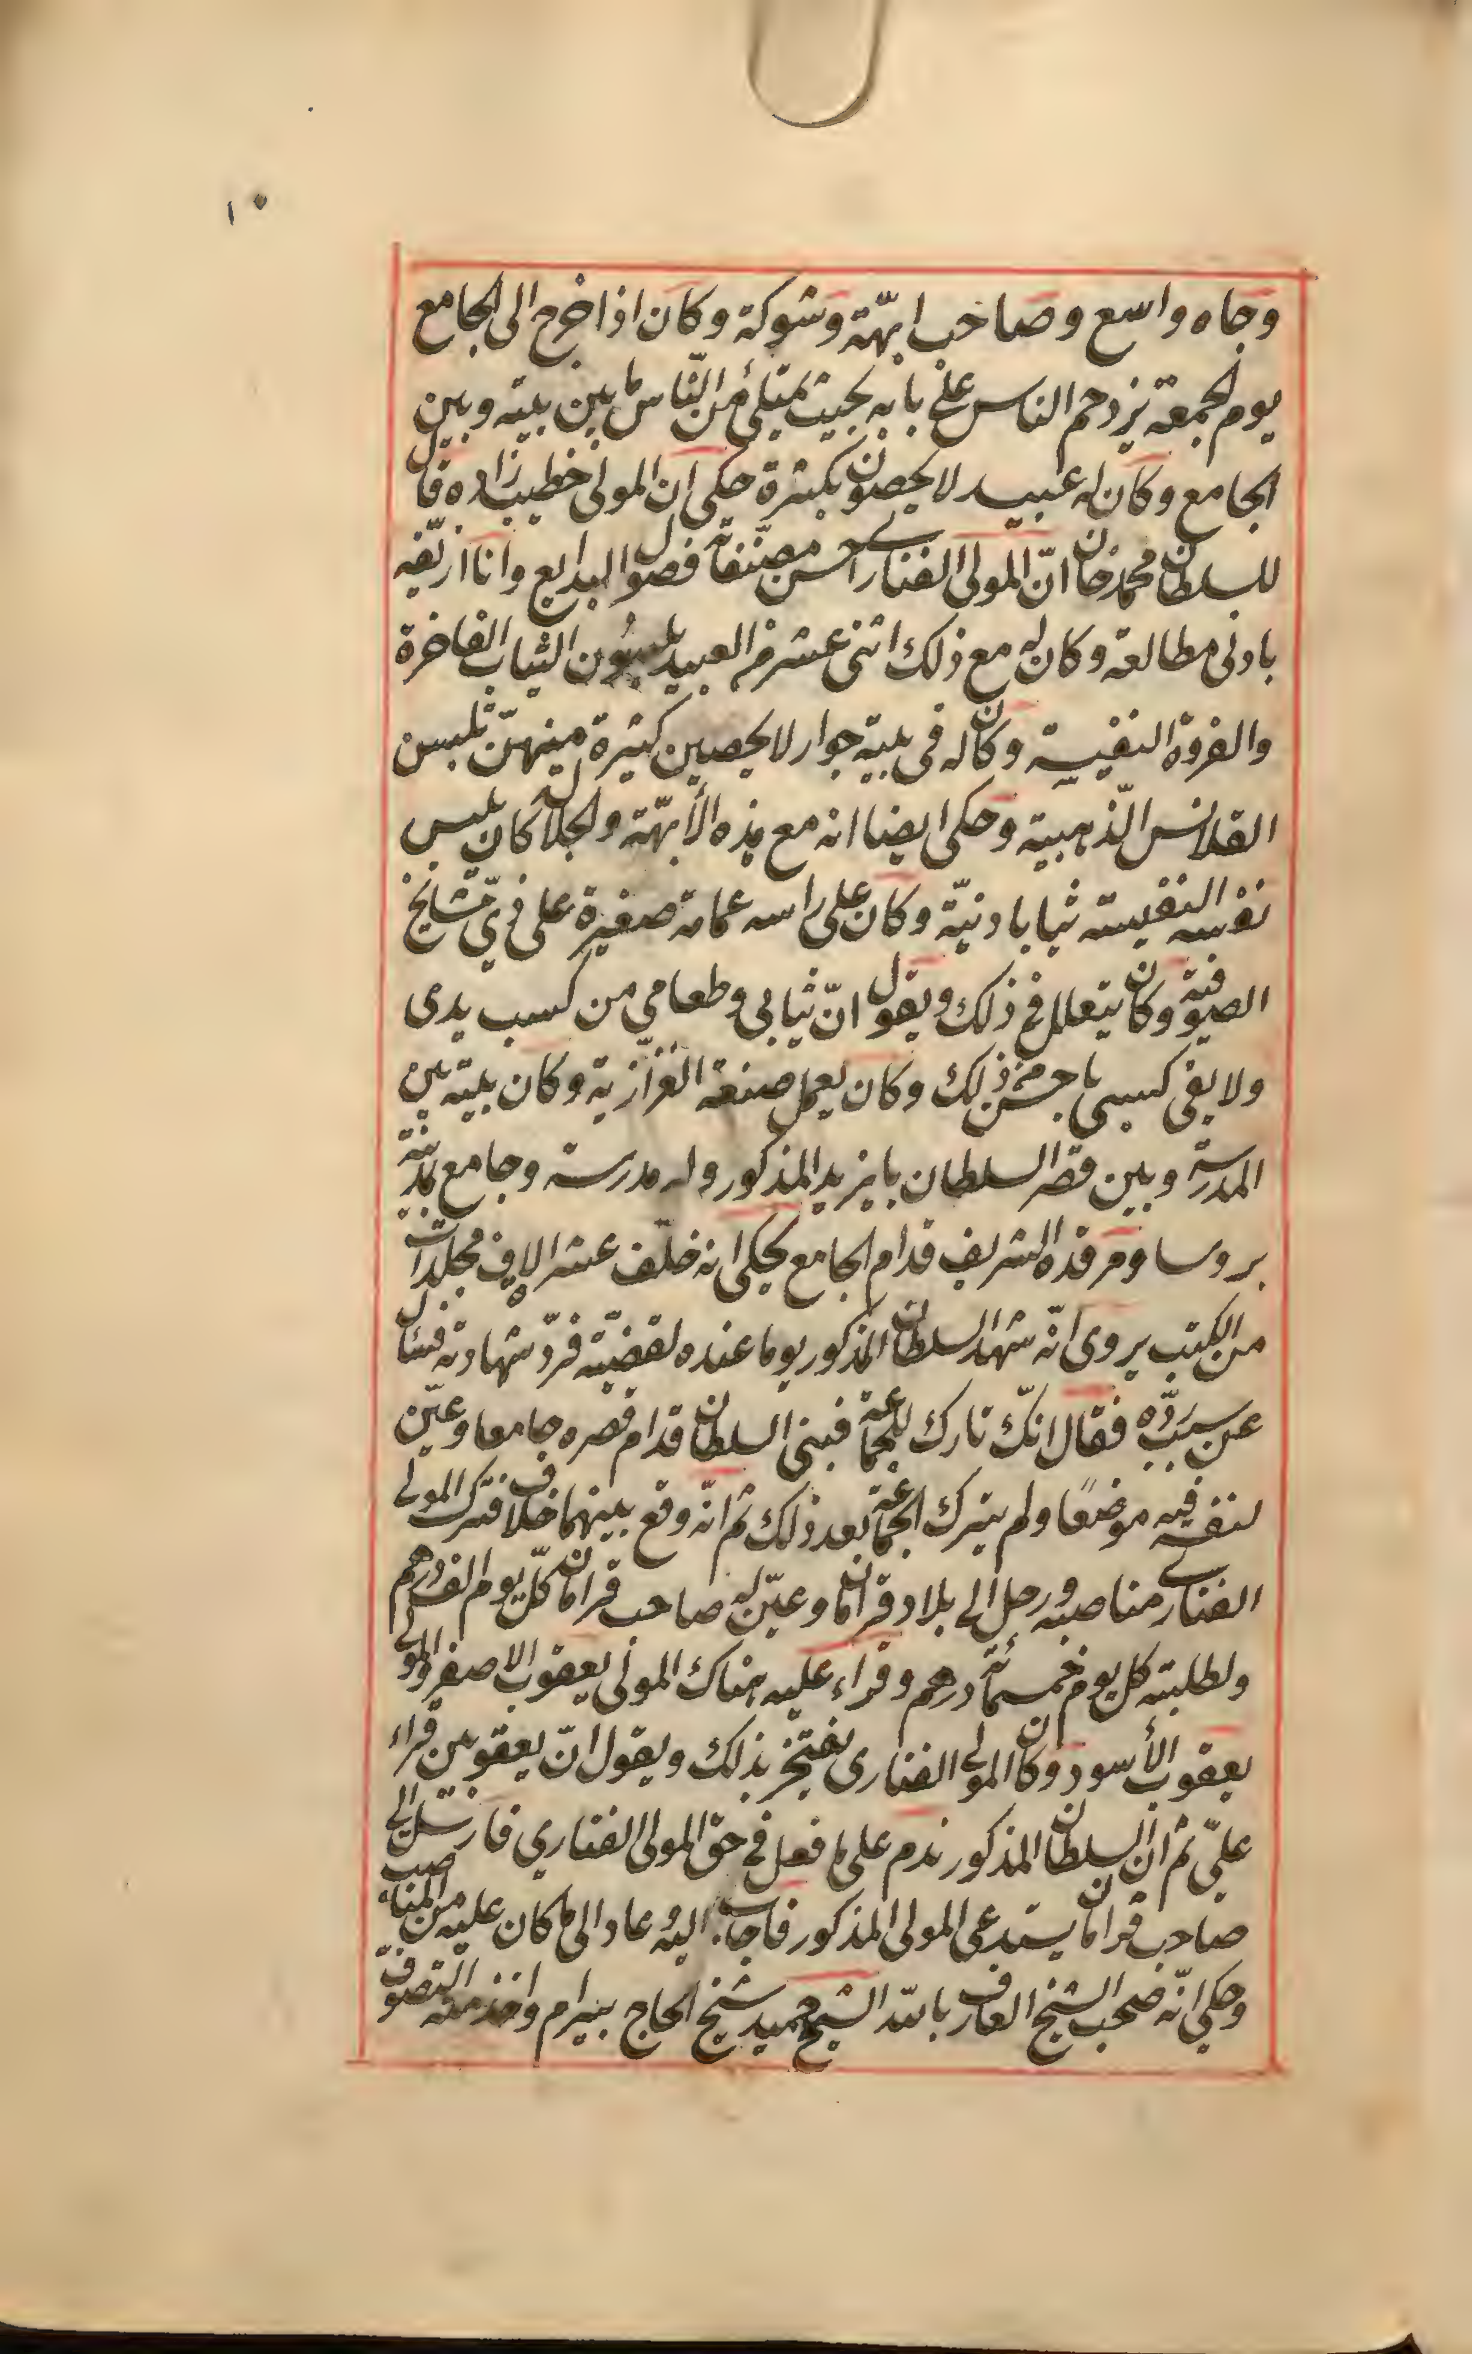 ١٠
وجاه واسع وصاحب ابّهة وشوكة وكان اذا خرج الى الجامع
يوم الجمعة يزدحم الناس على بابه بحيث يمتلئ من النّاس ما بين بيته وبين
الجامع وكان له عبيد لا يحصون بكثرة حكى ان المولى خطيب زاده قال
للسلطان محمد خان انّ المولى الفنارى احسن مصنّفاته فصول البدايع وانا ازيّفه
بادنى مطالعة وكان له مع ذلك اثنى عشر من العبيد يلبسون الثياب الفاخرة
والفروة النفيسة وكان له فى بيته جوار لا يحصين كثيرة منهنّ تلبس
القلانس الذّهبية وحكى ايضا انه مع هذه الأبهّة والجلالة كان يلبس
نفسه النفيسة ثيابا دنيّة وكان على راسه عمامة صغيرة على زىّ مشايخ
الصوفية وكان يتعلل فى ذلك ويقول انّ ثيابى وطعامي من كسب يدى
ولا يفى كسبى باحسن من ذلك وكان يعمل صنعة القزّازية وكان بيته بين
المدرسة وبين قصر السلطان بايزيد المذكور وله مدرسة وجامع بمدينة
بروسا ومرقده الشريف قدام الجامع يحكى انه خلّف عشرة الاف مجلدات
من الكتب يروى انّه شهد السلطان المذكور يوما عنده لقضيّة فردّ شهادته فسئال
عن سبب ردّه فقال انّك تارك للجماعة فبنى السلطان قدام قصره جامعا وعيّن
لنفسه فيه موضعًا ولم يترك الجماعة بعد ذلك ثم انّه وقع بينهما خلاف فترك المولى
الفنارى مناصبه ورحل الى بلاد قرامان وعيّن له صاحب قرامان كلّ يوم الف درهم
ولطلبته كل يوم خمسمائة درهم وقراء عليه هناك المولى يعقوب الاصفر والمولى
يعقوب الأسود وكان المولى الفنارى يفتخر بذلك ويقول انّ يعقوبين قراء
علىّ ثم انّ السلطان المذكور ندم على ما فعل فى حق المولى الفناري فارسل الى
صاحب قرامان يستدعى المولى المذكور فاجاب اليه وعاد الى ما كان عليه من المناصب
وحكى انّه صحب الشيخ العارف بالله الشيخ حميد شيخ الحاج بيرام واخذ منه التصوّف